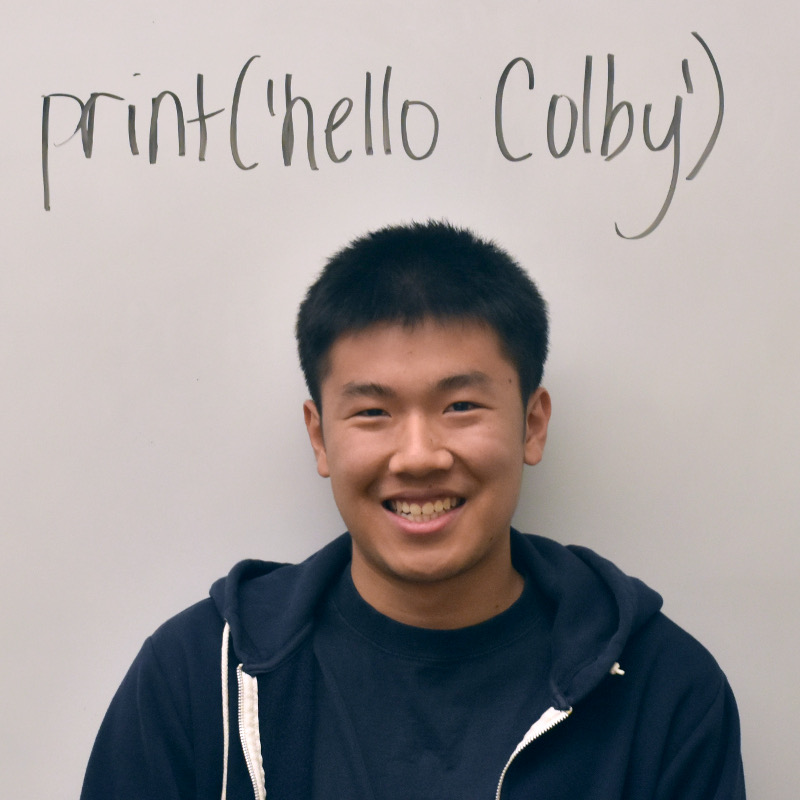 print('hello Colby')